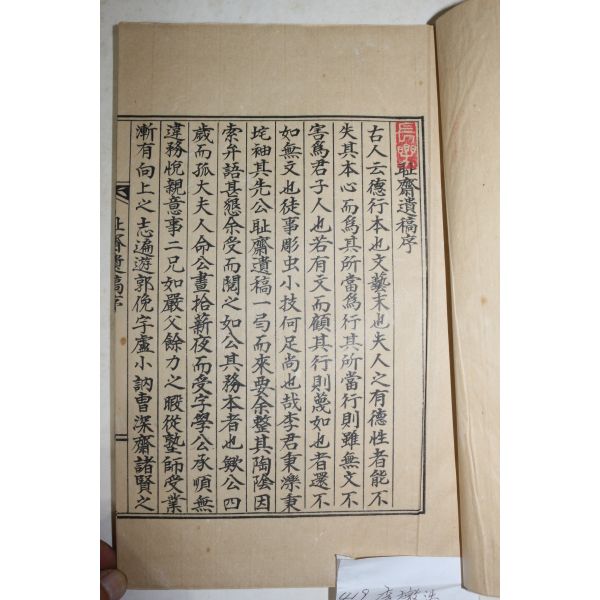 恥齋遺稿序
古人云德行本也文藝末也夫人之有德性者能不
失其本心而爲其所當爲行其所當行則雖無文不
害爲君子人也若有文而顧其行則蔑如也者還不
如無文也徒事彫虫小技何足尚也哉李君秉濼秉
坨袖其先公耻齋遺稿一局而來要余整其陶陰因
索弁語甚懇余受而閱之如公其務本者也歟公四
歲而孤大夫人命公晝拾薪夜而受字學公承順無
違務悅親意事二兄如嚴父餘力之暇從塾師受業
漸有向上之志遍遊郭俛宇盧小訥曺深齋諸賢之
耻齋遺稿序